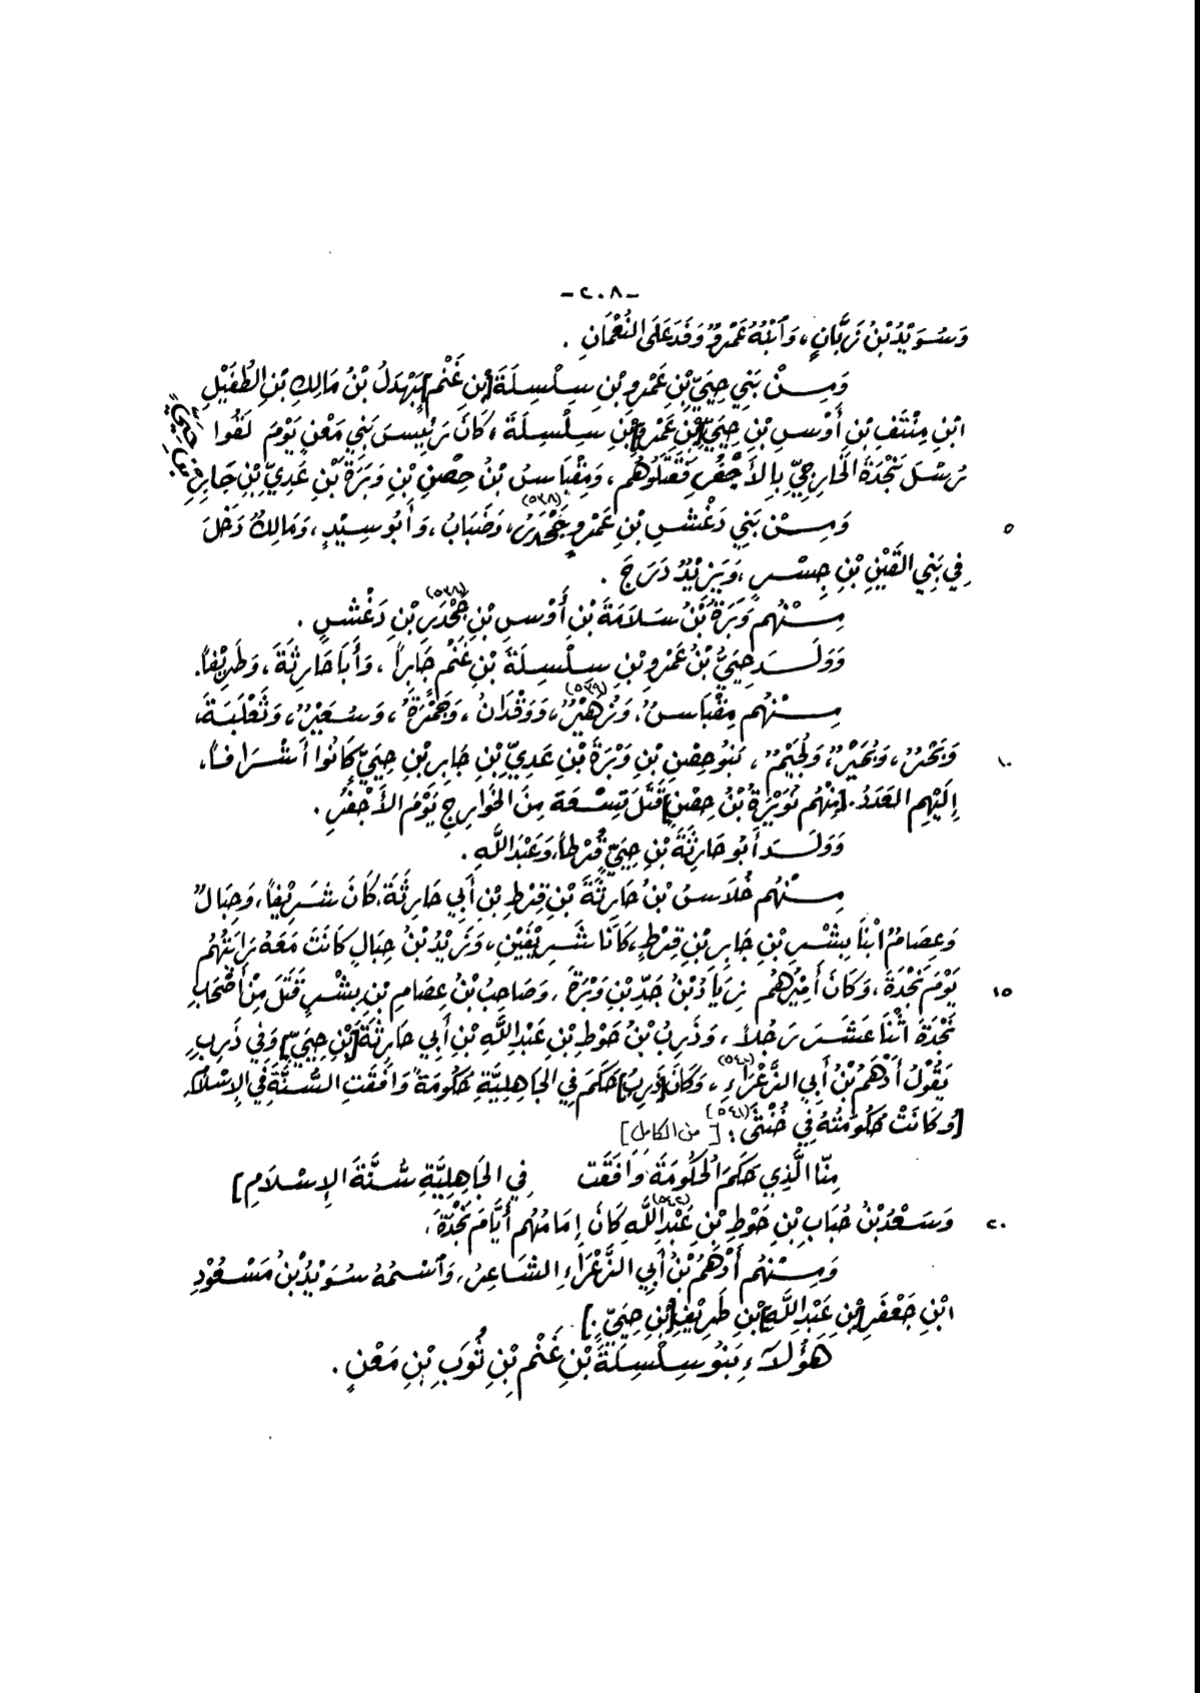 -٢٠٨-
وَسُوَيْدُ بْنُ زَبَّانٍ، وَابْنُهُ عَمْرٌو وَفَدَ عَلَى النُّعْمَانِ .
وَمِــنْ بَنِي حِيَيِّ بْنِ عَمْرِو بْنِ سِلْسِلَةَ [بْنِ غَنْمٍ] بَهْدَلُ بْنُ مَالِكِ بْنِ الطُّفَيْلِ
ابْنِ مِنْتَفِ بْنِ أَوْسِ بْنِ حِيَيِّ [بْنِ عَمْرِو] بْنِ سِلْسِلَةَ، كَانَ رَئِيسَ بَنِي مَعْنٍ يَوْمَ لَقُوا
رُسْلَ نَجْدَةَ الْخَارِجِيِّ بِالأَجْفُرِ فَقَتَلُوهُم، وَمِقْبَاسُ بْنُ حِصْنِ بْنِ وَبَرَةَ بْنِ عَدِيِّ بْنِ جَابِرِ بْنِ حِيَيٍّ
٥ وَمِــنْ بَنِي دَغْشِ بْنِ عَمْرٍو جَحْدَرٌ(٥٣٨)، وَضَبَابُ، وَأَبُو سِيْدٍ، وَمَالِكٌ دَخَلَ
فِي بَنِي القَيْنِ بْنِ جِسْرٍ، وَيَزِيْدُ دَرَجَ .
مِــنْهُم وَبَرَةُ بْنُ سَلَامَةَ بْنِ أَوْسِ بْنِ جَحْدَرِ(٥٣٨) بْنِ دَغْشٍ .
وَوَلَــدَ حِيَيُّ بْنُ عَمْرِو بْنِ سِلْسِلَةَ بْنِ غَنْمٍ جَابِراً، وَأَبَا حَارِثَةَ، وَطَرِيْفاً.
مِــنْهُم مِقْبَاسٌ، وَزُهَيْرٌ(٥٣٩)، وَوَفْدَانُ، وَجَمْرَةُ، وَسُعَيْرٌ، وَثَعْلَبَةُ،
١٠ وَبَحْرٌ، وَبُحَيْرٌ، وَلُجَيْمٌ، بَنُو حِصْنِ بْنِ وَبْرَةَ بْنِ عَدِيِّ بْنِ جَابِرِ بْنِ حِيَيٍّ كَانُوا أَشْرَافاً،
إِلَيْهِم العَدَدُ. [مِنْهُم نُوَيْرَةُ بْنُ حِصْنٍ] قَتَلَ تِسْعَةً مِنَ الخَوَارِجِ يَوْمَ الأَجْفُرِ .
وَوَلَــدَ أَبُو حَارِثَةَ بْنِ حِيَيٍّ قُرْطاً، وَعَبْدَ اللَّهِ .
مِــنْهُم خُلَاسُ بْنُ حَارِثَةَ بْنِ قِرْطِ بْنِ أَبِي حَارِثَةَ، كَانَ شَرِيْفاً، وَحِبَالٌ
وَعِصَامٌ ابْنَا بِشْرِ بْنِ جَابِرِ بْنِ قِرْطٍ، كَانَا شَرِيْفَيْنِ، وَزَيْدُ بْنُ حِبَالٍ كَانَتْ مَعَهُ رَايَتُهُمُ
١٥ يَوْمَ نَجْدَةَ، وَكَانَ أَمِيْرَهُم زِيَادُ بْنُ جَدِّ بْنِ وَبْرَةَ، وَصَاحِبُ بْنُ عِصَامِ بْنِ بِشْرٍ قَتَلَ مِنْ أَصْحَابِ
نَجْدَةَ اثْنَا عَشَرَ رَجُلاً، وَذَرِبُ بْنُ حَوْطِ بْنِ عَبْدِ اللَّهِ بْنِ أَبِي حَارِثَةَ [بْنِ حِيَيٍّ] وَفِي ذَرِبٍ
يَقُوْلُ أَدْهَمُ بْنُ أَبِي الزَّعْرَاءِ(٥٤٠)، وَكَانَ [ذَرِبُ] حَكَمَ فِي الجَاهِلِيَّةِ حُكُومَةً وَافَقَتِ السُّنَّةَ فِي الإِسْلَامِ
[وَكَانَتْ حُكُومَتُهُ فِي خُنْثَى(٥٤١): [من الكامل]
مِنَّا الَّذِي حَكَمَ الحُكُومَةَ وَافَقَتْ فِي الجَاهِلِيَّةِ سُنَّةَ الإِسْلَامِ]
٢٠ وَسَعْدُ بْنُ حُبَابِ بْنِ حَوْطِ بْنِ عَبْدِ اللَّهِ(٥٤٢) كَانَ إِمَامَهُم أَيَّامَ نَجْدَةَ.
وَمِــنْهُم أَدْهَمُ بْنُ أَبِي الزَّعْرَاءِ الشَاعِرُ، وَاسْمُهُ سُوَيْدُ بْنُ مَسْعُوْدِ
ابْنِ جَعْفَرِ [بْنِ عَبْدِ اللَّهِ] بْنِ طَرِيْفِ [بْنِ حِيَيٍّ .]
هَؤُلَاءِ بَنُو سِلْسِلَةَ بْنِ غَنْمِ بْنِ ثُوَبِ بْنِ مَعْنٍ .